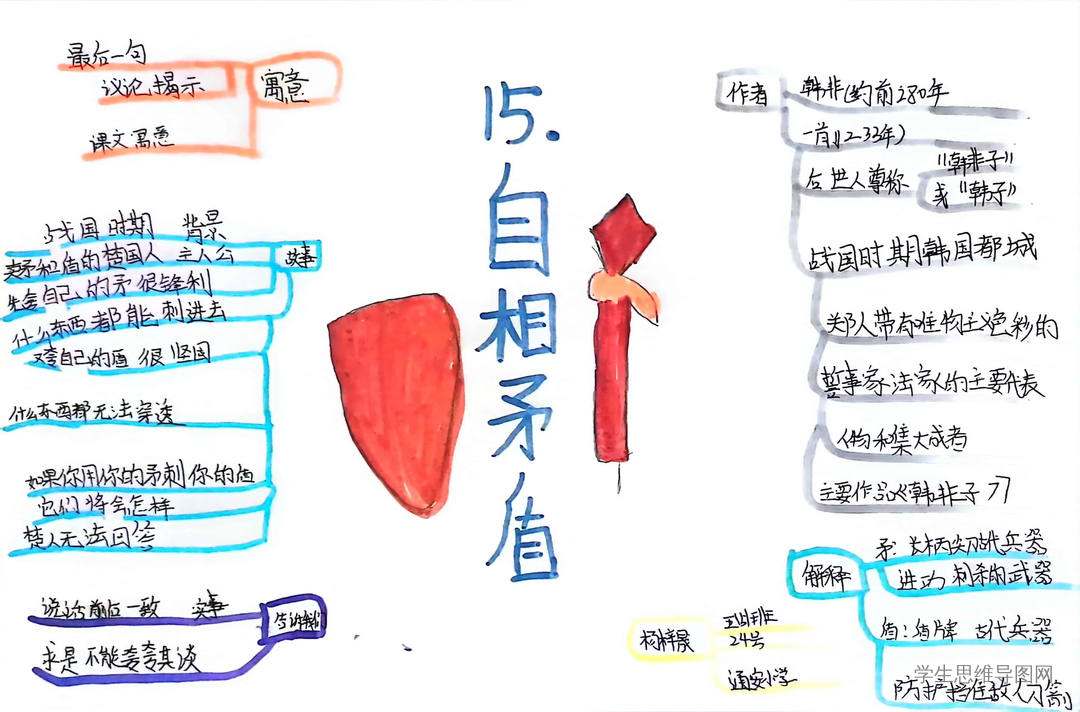 15.自相矛值
寓意
最后一句
议论揭示
课文寓意
战国时期 背景
卖矛和盾的楚国人 主人公
先夸自己的矛很锋利
什么东西都能刺进去
又夸自己的盾很坚固
什么东西都无法穿透
如果你用你的矛刺你的盾
它们将会怎样
楚人无法回答
告诉我们
说话前后一致 实事
求是不能夸夸其谈
作者
韩非(约前280年
一前233年)
后世人尊称
"韩非子"
或"韩子"
战国时期韩国都城
郑人带有唯物主义色彩的
哲事家法家的主要代表
人物和集大成者
主要作品《韩非子》
解释
矛:长柄尖刀古代兵器
进攻刺杀的武器
盾:盾牌 古代兵器
防护挡住敌人刀箭
24号
通安小学
学生思维导图网